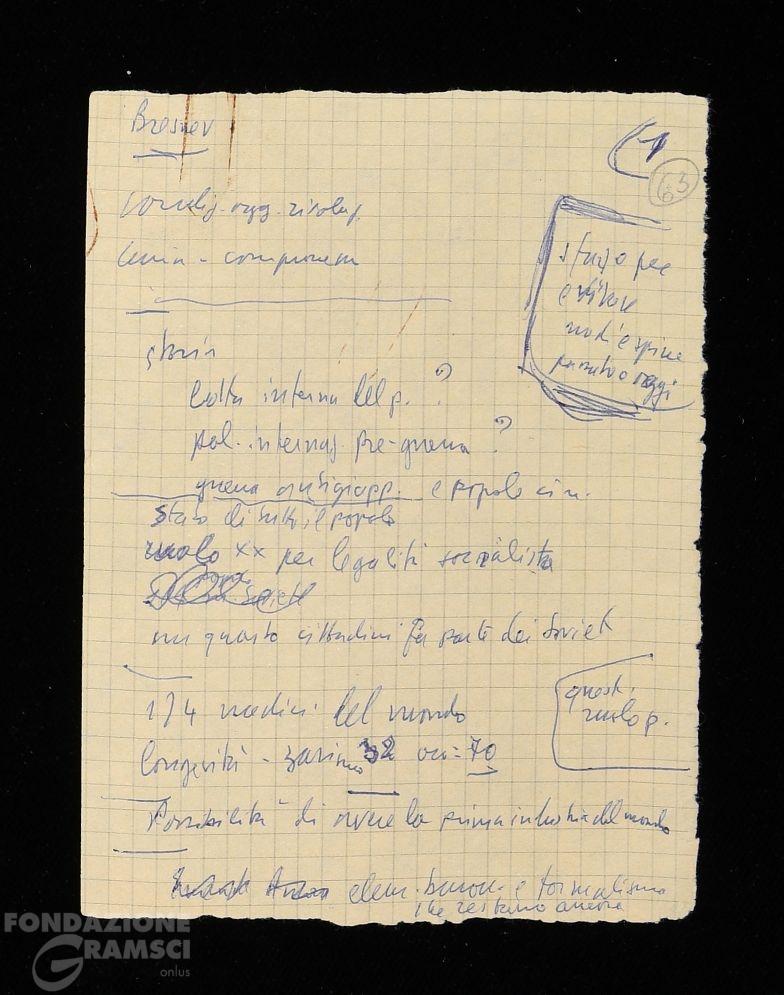 Bresnev
1
63
condiz. ogg. rivoluz.
Lenin -
sforzo per
evitare
nodi e spine
passato o oggi
storia
lotta interna del p. ?
pol. internaz. pre-guerra ?
guerra antigiapp. e popolo cin.
Stato di tutto il popolo
ruolo XX per legalità socialista
un quarto cittadini fa parte dei Soviet
1/4 medici del mondo
quest.
ruolo p.
longevità - zarismo 32 ora = 70
Possibilità di avere la prima industria del mondo
elem. buroc. e formalismo
che restano ancora
FONDAZIONE
GRAMSCI
onlus